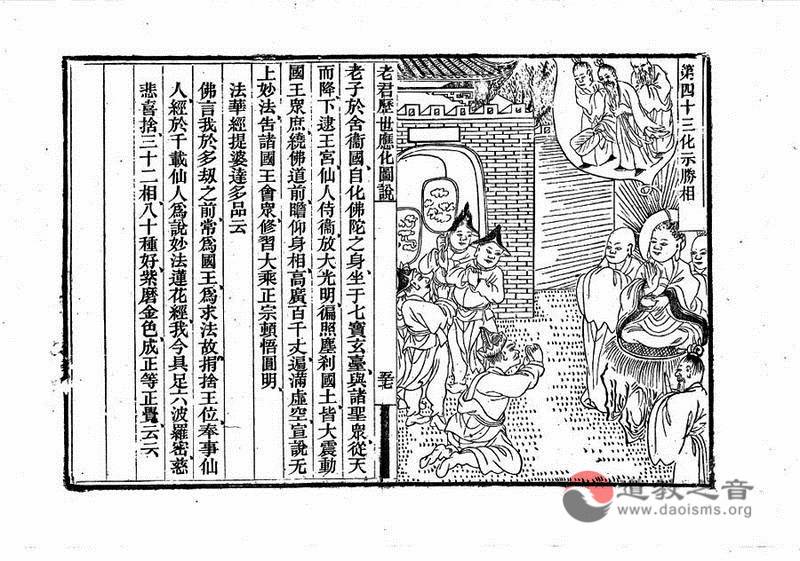 第四十三化示勝相
老君歷世應化圖說
老子於舍衞國自化佛陀之身坐于七寶玄臺與諸聖衆從天
而降下逮王宮仙人侍衞放大光明徧照塵刹國土皆大震動
國王衆庶繞佛道前瞻仰身相高廣百千丈遍滿虛空宣說无
上妙法告諸國王會衆修習大乘正宗頓悟圓明
法華經提婆達多品云
佛言我於多刼之前常爲國王爲求法故捐捨王位奉事仙
人經於千載仙人爲說妙法蓮花經我今具足六波羅密慈
悲喜捨三十二相八十種好紫磨金色成正等正覺云云
道教之音
www.daoisms.org